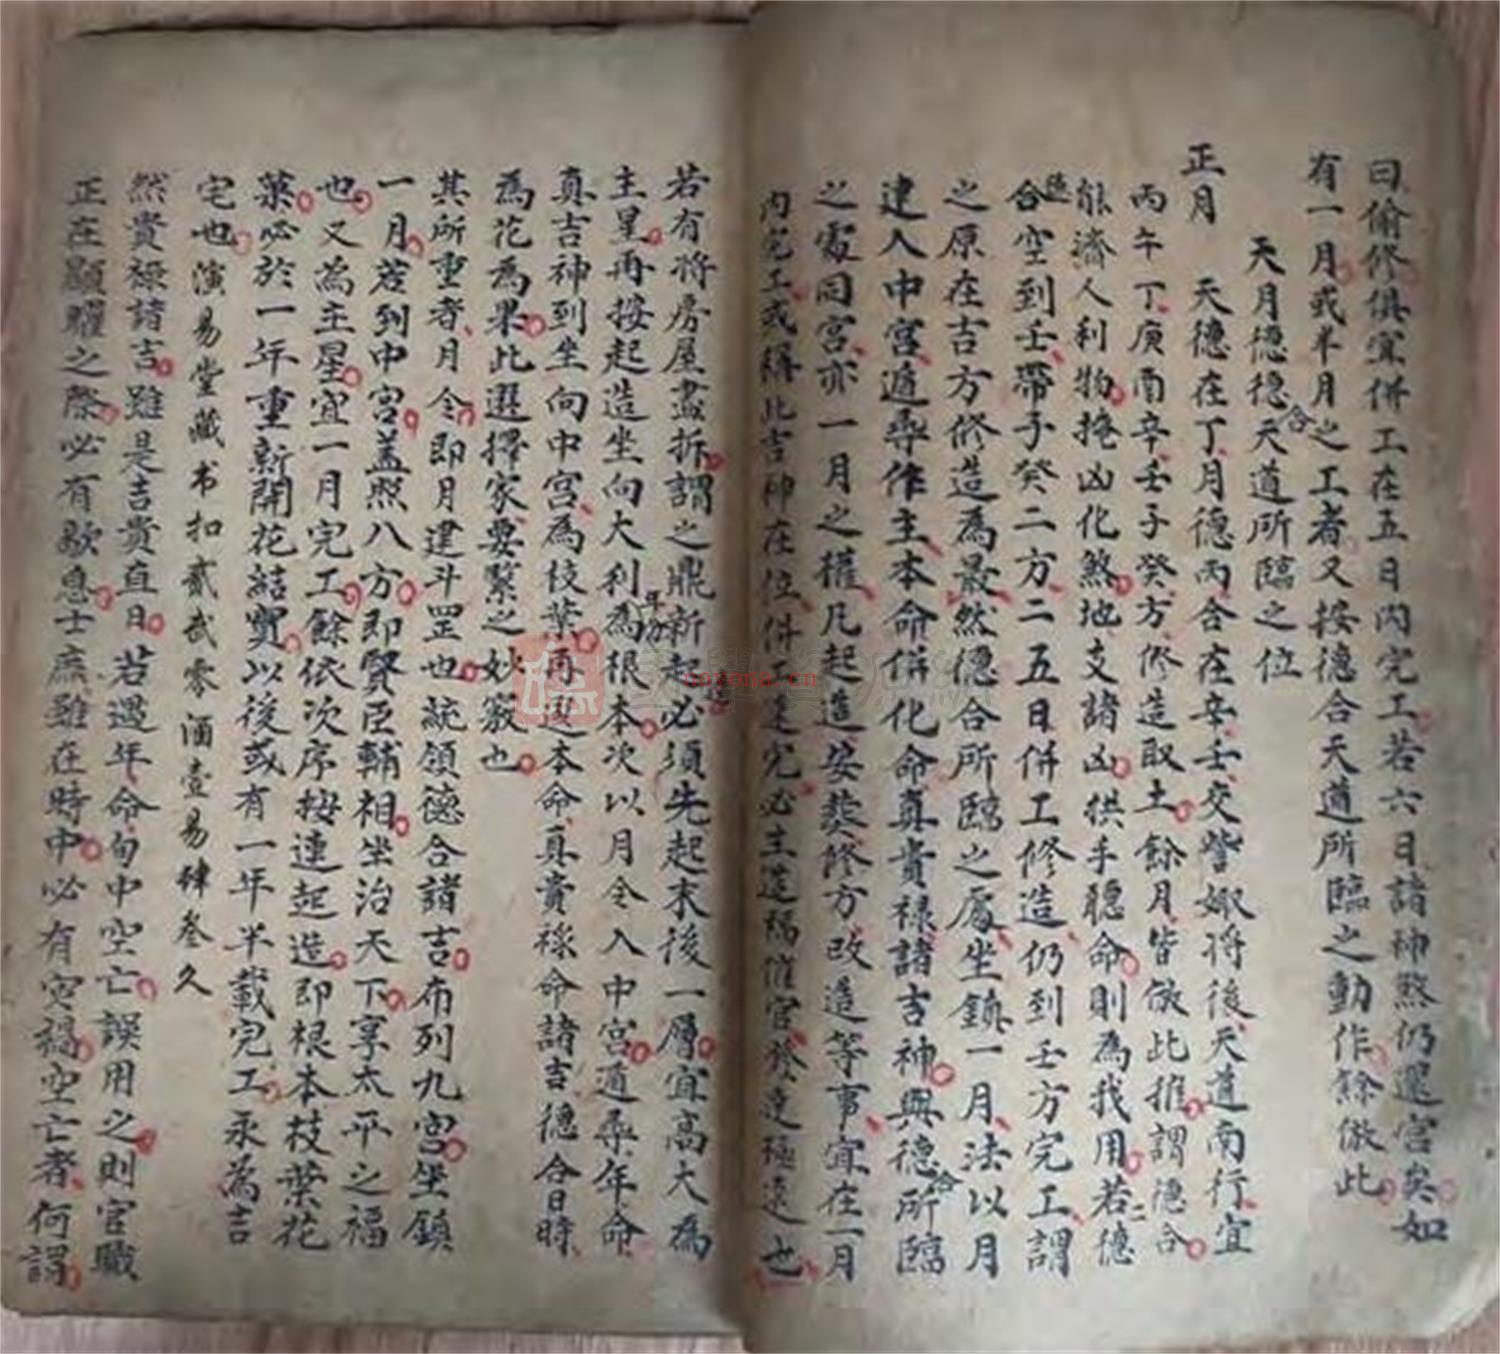 曰偷修俱宜併工在五日內完工若六日諸神煞仍還宮矣如
有一月或半月之工者又按德合天道所臨之動作餘倣此
天月德德合天道所臨之位
正月 天德在丁月德丙合在辛壬交訾娵將後天道南行宜
丙午丁庚酉辛壬子癸方修造取土餘月皆倣此推謂德合
能濟人利物掩凶化煞地支諸凶拱手聽命則為我用若二德
合空到壬帶子癸二方二五日併工修造仍到壬方完工謂
之原在吉方修造為最然德合所臨之處坐鎮一月法以月
建入中宮遁尋作主本命併化命真貴祿諸吉神與德合所臨
之處同宮亦一月之權凡起造安葬修方改造等事宜在一月
內完工或構此吉神在位併工速完必主造福催官發達極速也
若有將房屋盡拆謂之鼎新起造必須先起末後一層宜高大為
主星再按起造坐向大利年方為根本次以月令入中宮遁尋年命
真吉神到坐向中宮為枝葉再逐本命真貴祿命諸吉德合日時
為花為果此選擇家要緊之妙竅也
其所重者月令即月建斗罡也統領德合諸吉布列九宮坐鎮
一月若到中宮蓋照八方即賢臣輔相坐治天下享太平之福
也又為主星宜一月完工餘依次序按連起造即根本枝葉花
菓必於一年重新開花結實以後或有一年半載完工永為吉
宅也
演易堂藏书扣贰贰零酒壹易肆叁久
然貴祿諸吉雖是吉貴直日若遇年命旬中空亡誤用之則官職
正在顯耀之際必有歇息士庶雖在時中必有災禍空亡者何謂